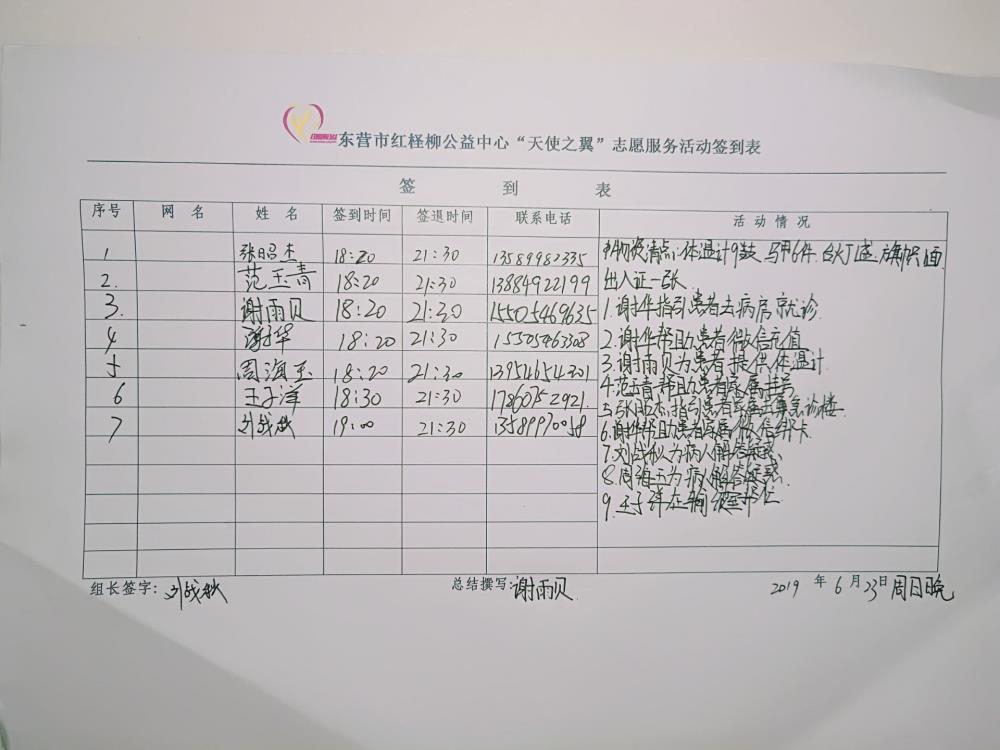 东营市红柽柳公益中心“天使之翼”志愿服务活动签到表
签 到 表
序号 网 名 姓 名 签到时间 签退时间 联系电话 活 动 情 况
1 张昭杰 18:20 21:30 13589982335
2. 范玉青 18:20 21:30 13884922199
3. 谢雨贝 18:20 21:30 15505469635
4 谢华 18:20 21:30 15505463308
5 周海玉 18:20 21:30 13954654301
6 王子洋 18:30 21:30 17860752921.
7 刘战秋 19:00 21:30 13589970058
物资清点:体温计9鼓、马甲6件、台灯1盏、旗帜1面
出入证一张
1.谢华指引患者去病房就诊.
2.谢华帮助患者微信充值
3.谢雨贝为患者提供体温计
4.范玉青帮助患者家属挂号
5.张昭杰指引患者家属去算急诊楼.
6.谢华帮助患者家属微信绑卡
7.刘战秋为病人解答疑惑
8.周海玉为病人解答疑惑.
9.王子洋在输液室帮忙
组长签字:刘战秋 总结撰写:谢雨贝 2019 年 6 月 23日周日晚